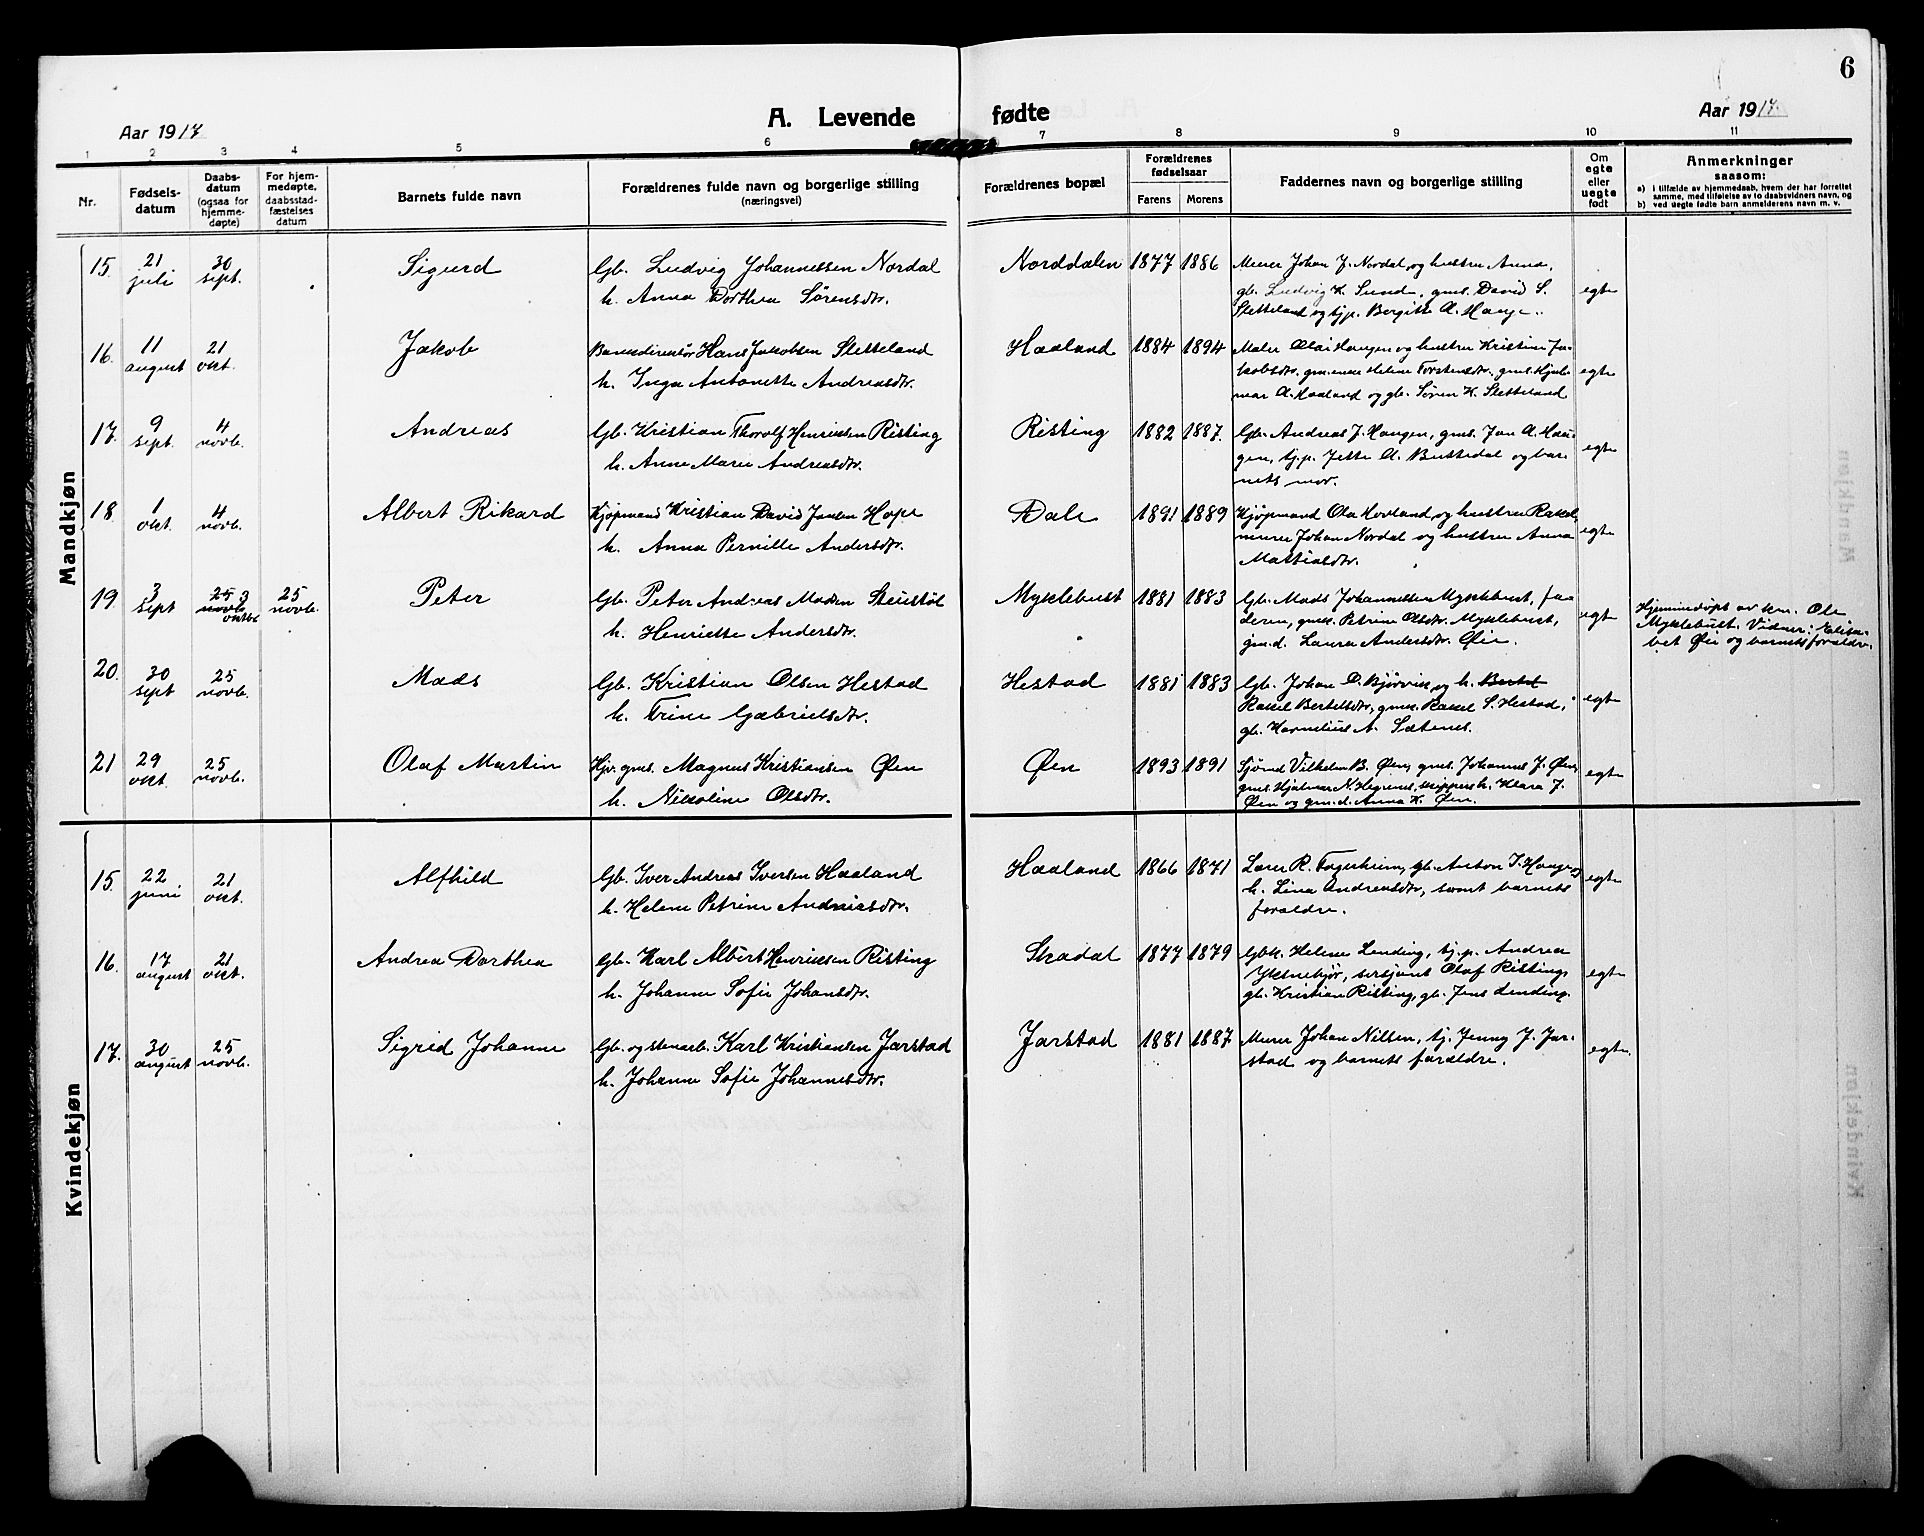 6
Aar 1917
A. Levende fødte
Aar 1917
1 2 3 4 5 6 7 8 9 10 11
Nr.
Fødsels-
datum
Daabs-
datum
(ogsaa for
hjemme-
døpte)
For hjem-
medøpte,
daabsstad-
fæstelses
datum
Barnets fulde navn
Forældrenes fulde navn og borgerlige stilling
(næringsvei)
Forældrenes bopæl
Forældrenes
fødselsaar
Farens Morens
Faddernes navn og borgerlige stilling
Om
egte
eller
uegte
født
Anmerkninger
saasom:
a) i tilfælde av hjemmedaab, hvem der har forrettet
samme, med tilføielse av to daabsvidners navn, og
b) ved uegte fødte barn anmelderens navn m. v.
Mandkjøn
15. 21 juli 30 sept. Sigurd
Gb. Ludvig Johannessen Nordal
h. Anna Dorthea Sørensdtr.
Norddalen 1877 1886
Murer Johan J. Nordal og hustru Anna,
gb. Ludvig K. Sunde, gms. David S.
Stetteland og tj.p. Bergitte A. Hauge.
egte
16. 11 august 21 okt. Jakob
Hans Jakobsen Sletteland
h. Inga Antonette Andreasdtr.
Haaland 1884 1894
Maler Olai Haugen og hustru Kristine Ja-
kobsdtr. Helene Torstensdtr. gms. Hjal-
mar A. Haaland og gb. Søren K. Sletteland
egte
17. 9 sept. 4 novb. Andreas
Gb. Kristian Thorolf Henriksen Risting
h. Anne Marie Andreasdtr.
Risting 1882 1887.
Gb. Andreas J. Haugen, gms. Jan A. Hau-
gen, tj.p. Jette A. og bar-
nets mor.
egte
18 1 okt. 4 novb. Albert Rikard
Kjøpmand Kristian David Jonsen Hope
h. Anna Pernille Andersdtr.
Dale 1891 1889
Kjøpmand Ola Hovland og hustru Rakel,
murer Johan Nordal og hustru Anna
Mattiasdtr.
egte
19. 3 sept 25 novb. 3 oktbr 25 novb. Peter
Gb. Peter Andreas Madsen
h. Henriette Andersdtr.
Myklebust 1881 1883
Gb. Mads Johannessen Myklebust, fa-
deren, gms. Petrine Olsdtr. Myklebust,
gm.d. Laura Andersdtr. Øen.
egte
Hjemmedøpt av km. Ole
Myklebust. Vidner: Elisa-
bet Øen og barnets forældre.
20. 30 sept 25 novb. Mads
Gb. Kristian Olsen Hestad
h. Trine Gabrielsdtr.
Hestad 1881 1883
Gb. Johan D. Bjørvik og h. Bertel
Rakel Bertelsdtr, gms. Rakel S. Hestad,
gb. Kornelius A. Sætenes.
egte
21 29 okt. 25 novb. Olaf Martin
Hjv. gms. Magnus Kristiansen Øen
h. Nikoline Olsdtr.
Øen 1893 1891
Sjømd Vilhelm B. Øen, gms. Johannes J. Øen,
gms. Hjalmar N. Hegrenes, skippers h. Klara J.
Øen og gm.d. Anna K. Øen.
egte
Kvindekjøn
15. 22 juni 21 okt. Alfhild
Gb. Iver Andreas Iversen Haaland
h. Helene Petrine Andreasdtr.
Haaland 1866 1871
Lærer R. Fagerheim, gb. Anton I. Hauge og
h. Lina Andreasdtr, samt barnets
forældre.
egte
16. 17 august 21 okt. Andrea Dorthea
Gb. Karl Albert Henriksen Risting
h. Johanne Sofie Johansdtr.
Skadal 1877 1879
Gbk. Helene Lending, tj.p. Andrea
Yksnebjør, sersjant Olaf Risting,
gb. Kristian Risting, gb. Jens Lending.
egte
17. 30 august 25 novb. Sigrid Johanne
Gb. og stenarb. Karl Kristiansen Jarstad
h. Johanne Sofie Johannesdtr.
Jarstad 1881 1887
Murer Johan Nilsen, tj. Jenny J. Jar-
stad og barnets forældre.
egte.